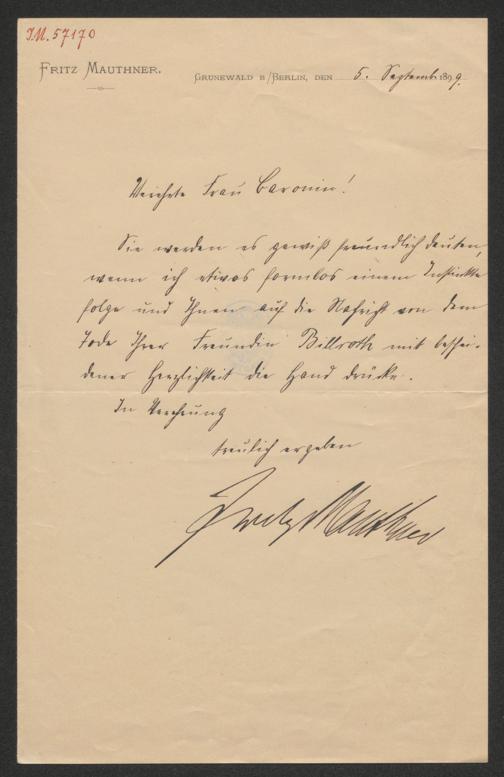 I.N. 57170
FRITZ MAUTHNER.
GRUNEWALD B/BERLIN, DEN 5. Septemb. 1899.
Verehrte Frau Baronin!
Sie werden es gewiß freundlich deuten,
wenn ich etwas formlos einem Instinkte
folge und Ihnen auf die Nachricht von dem
Tode Ihrer Freundin Billroth mit beschei-
dener Herzlichkeit die Hand drücke.
In Verehrung
treulich ergeben
Fritz Mauthner